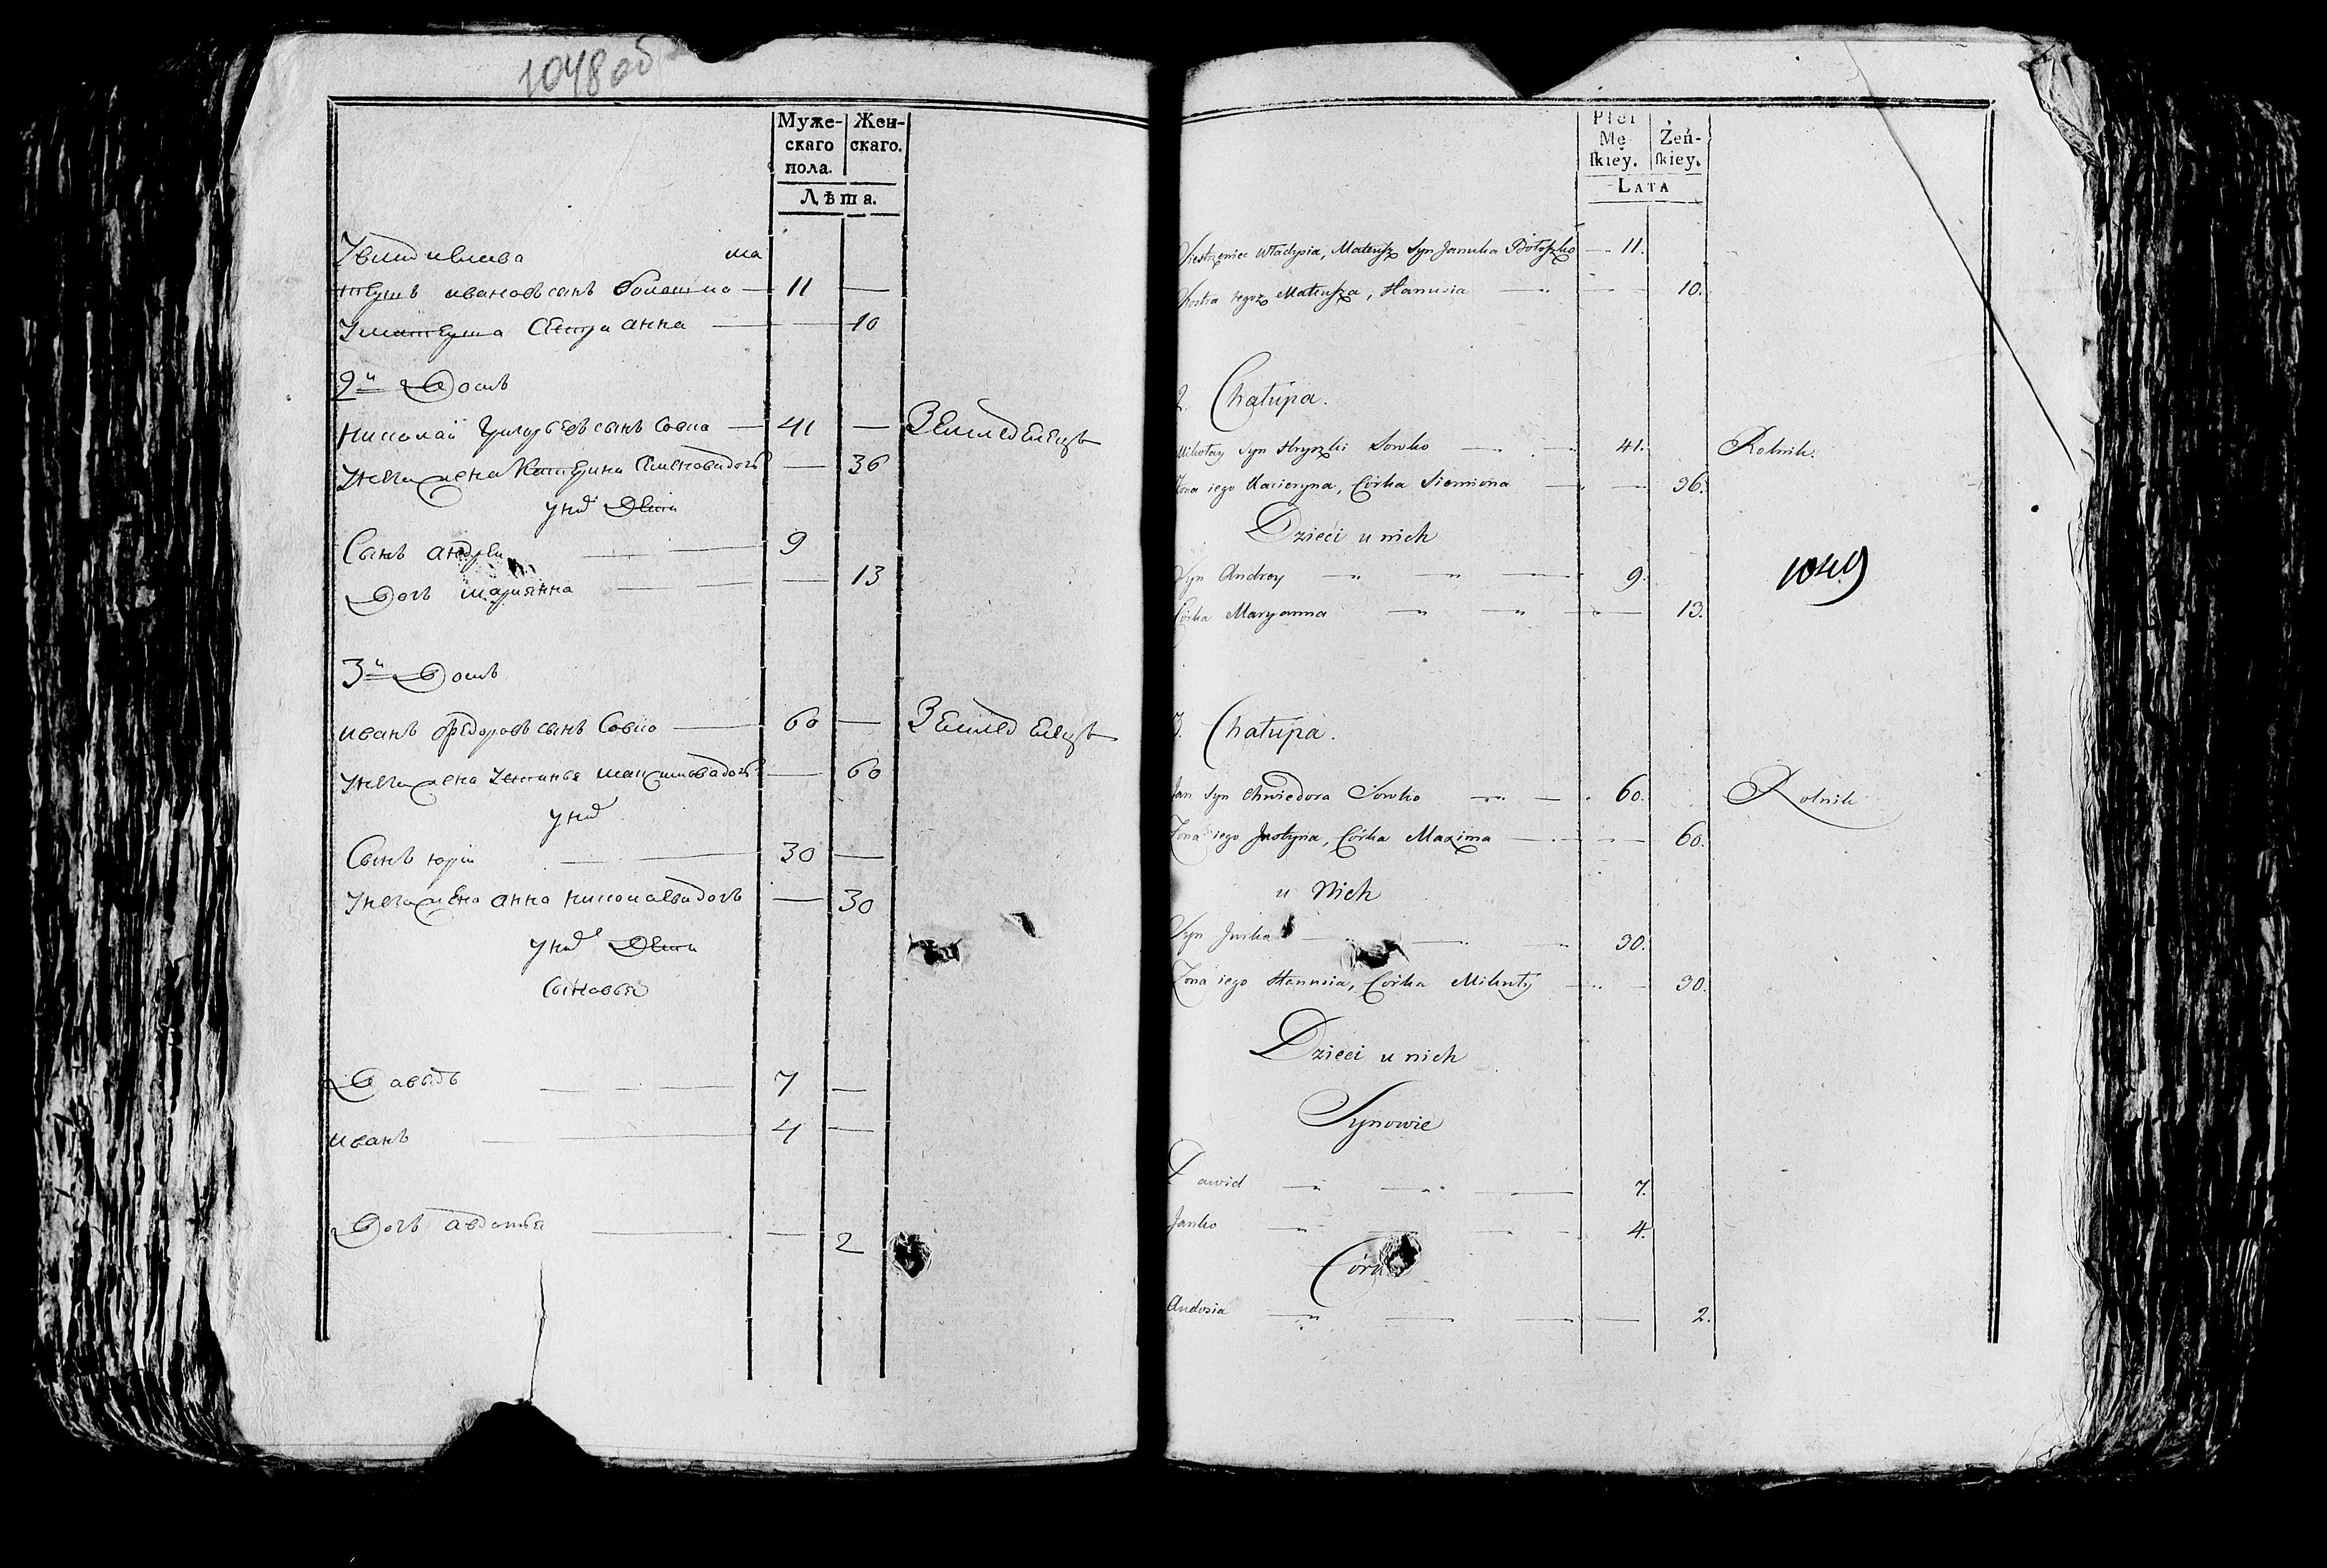 1048 об
Муже-
скаго
пола.
Жен-
скаго.
Лѣта.
ма
теушъ ивановъ сынъ — 11 —
Уматеуша сестра анна — — 10
2й Домъ
Николай Григорьевъ сынъ Совка — 41 — Землѣделецъ
У него жена Катерина Семенова дочь — 36
у них Дети
Сынъ андрей — 9
Дочь марьянна — — 13
3й Домъ
иванъ Федоровъ сынъ Совка — 60 — Землѣделецъ
У него жена Устинья Максимова дочь — 60
у них
Сынъ юрiи — 30 —
У него жена анна николаева дочь — 30
у них Дети
Сыновья
Давыдъ — 7 —
иванъ — 4 —
Дочь авдотья — — 2
Płci
Mę
skiey.
Żeń-
skiey.
LATA
Siestrzeniec Władysia, Mateusz Syn Januka — 11.
Siostra tegoż Mateusza, Hanusia — — 10.
2. Chałupa.
Mikołay Syn Hryszki Sowko — 41. Rolnik.
Żona iego Kacieryna, Córka Siemiona — — 36.
Dzieci u nich
Syn Andrey — 9.
Córka Maryanna — — 13.
1049
3. Chałupa.
Jan Syn Chwiedora Sowko — 60. Rolnik
Żona iego Justyna, Córka Maxima — — 60.
u Nich
Syn Jurka — 30.
Żona iego Hanusia, Córka Mikuły — 30.
Dzieci u nich
Synowie
Dawid — 7.
Janko — 4.
Córa
Audosia — — 2.